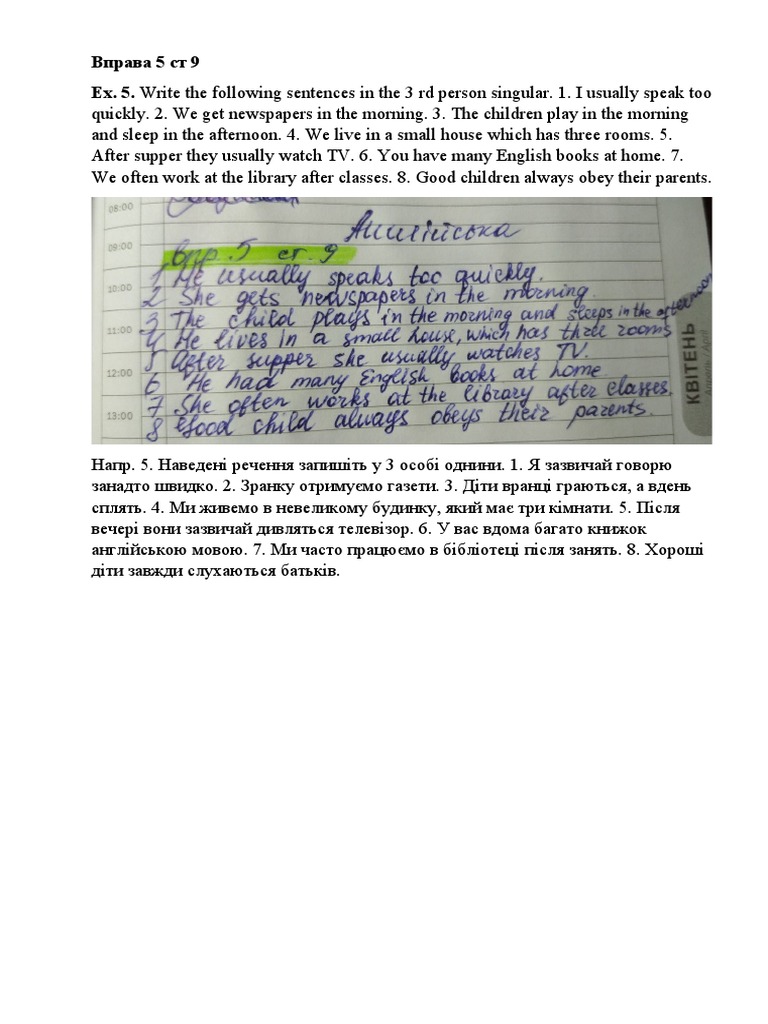 Вправа 5 ст 9
Ex. 5. Write the following sentences in the 3 rd person singular. 1. I usually speak too
quickly. 2. We get newspapers in the morning. 3. The children play in the morning
and sleep in the afternoon. 4. We live in a small house which has three rooms. 5.
After supper they usually watch TV. 6. You have many English books at home. 7.
We often work at the library after classes. 8. Good children always obey their parents.
08:00
Англійська
09:00
впр. 5 ст. 9
1 He usually speaks too quickly.
10:00
2 She gets newspapers in the morning.
3 The child plays in the morning and sleeps in the afternoon
11:00
4 He lives in a small house, which has three rooms
5 After supper she usually watches TV.
12:00
6 He had many English books at home.
7 She often works at the library after classes.
13:00
8 Good child always obeys their parents.
КВІТЕНЬ
Напр. 5. Наведені речення запишіть у 3 особі однини. 1. Я зазвичай говорю
занадто швидко. 2. Зранку отримуємо газети. 3. Діти вранці граються, а вдень
сплять. 4. Ми живемо в невеликому будинку, який має три кімнати. 5. Після
вечері вони зазвичай дивляться телевізор. 6. У вас вдома багато книжок
англійською мовою. 7. Ми часто працюємо в бібліотеці після занять. 8. Хороші
діти завжди слухаються батьків.